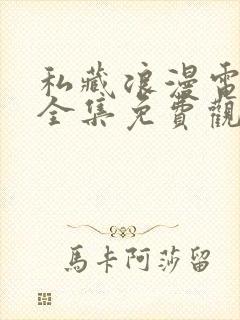 私藏浪漫電
全集免費觀
馬卡阿莎留